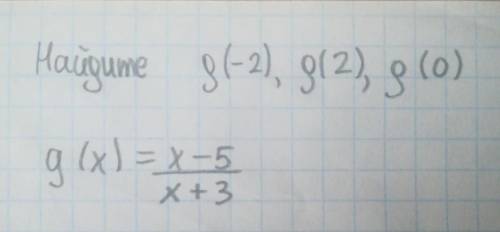 Найдите g(-2), g(2), g(0)
g(x) = x-5/x+3